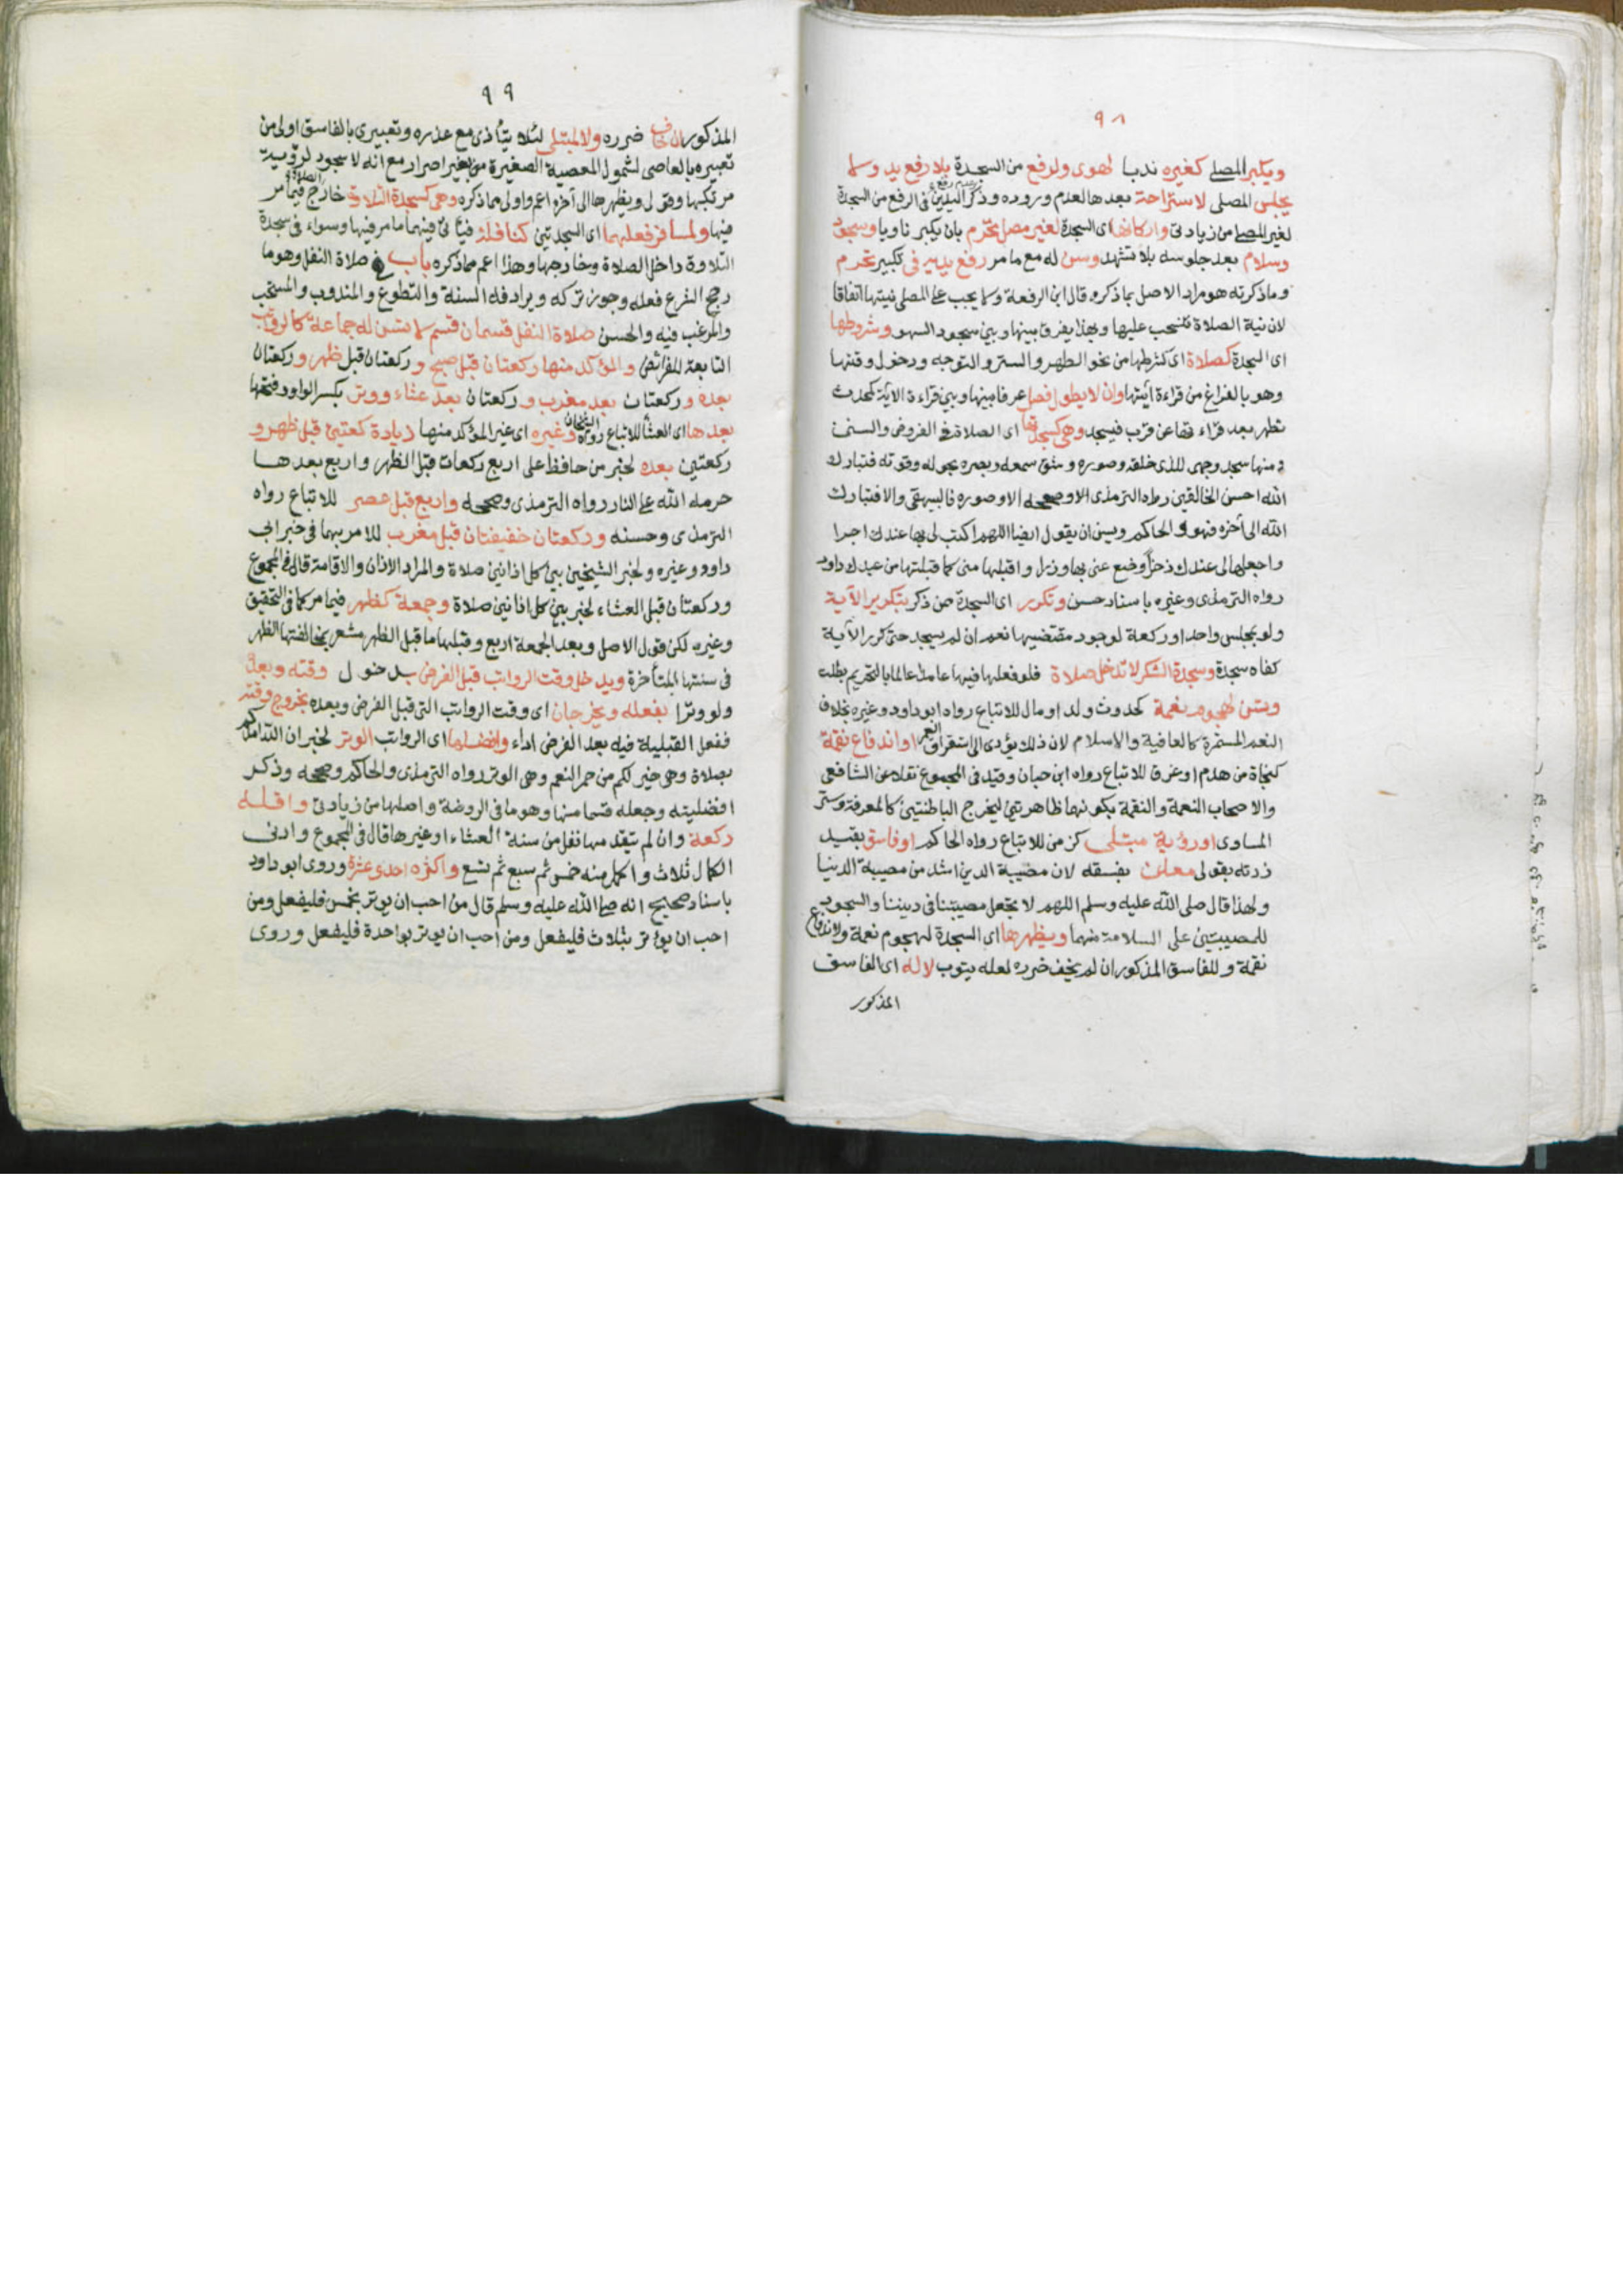 ٩٨
ويكبر المصلي كغيره ندبا لهوى ولرفع من السجدة بلا رفع يد ولا
يجلس المصلى لاستراحة بعدها لعدم وروده وذكر عدم رفع اليدين في الرفع من السجدة
لغير المصلي من زيادتى واركانها اى السجدة لغير مصل تحرم بان يكبر ناويا وسجود
وسلام بعد جلوسه بلا تشهد وسن له مع ما مر رفع يديه فى تكبير تحرم
وما ذكرته هو مراد الاصل بما ذكره قال ابن الرفعة ولا يجب على المصلى نيتها اتفاقا
لان نية الصلاة تنسحب عليها وبهذا يفرق بينها وبين سجود السهو وشروطها
اى السجدة كصلاة اى كشرطها من نحو الطهر والستر والتوجه ودخول وقتها
وهو بالفراغ من قراءة آيتها وان لا يطول فصل عرفا بينها وبين قراءة الآية كمحدث
تطهر بعد قراءتها عن قرب فيسجد وهى كسجدتها اى الصلاة في الفروض والسنن
ومنها سجد وجهى للذى خلقه وصوره وشق سمعه وبصره بحوله وقوته فتبارك
الله احسن الخالقين رواه الترمذى الا وصححه الا وصوره فالبيهقى والا فتبارك
الله الى آخره فهو والحاكم ويسن ان يقول ايضا اللهم اكتب لى بها عندك اجرا
واجعلها لى عندك ذخرا وضع عنى بها وزرا واقبلها منى كما قبلتها من عبدك داود
رواه الترمذى وغيره باسناد حسن وتكرر اى السجدة ممن ذكر بتكرير الآية
ولو بمجلس واحد او ركعة لوجود مقتضيها نعم ان لم يسجد حتى كرر الآية
كفاه سجدة وسجدة الشكر لا تدخل صلاة فلو فعلها فيها عامدا عالما بالتحريم بطلت
وتسن لهجوم نعمة كحدوث ولد او مال للاتباع رواه ابو داود وغيره بخلاف
النعم المستمرة كالعافية والاسلام لان ذلك يؤدى الى استغراق العمر او اندفاع نقمة
كنجاة من هدم او غرق للاتباع رواه ابن حبان وقيد فى المجموع نقلا عن الشافعى
والاصحاب النعمة والنقمة بكونهما ظاهرتين ليخرج الباطنتين كالمعرفة وستر
المساوى او رؤية مبتلى كزمن للاتباع رواه الحاكم او فاسق بقيد
زدته بقولى معلن بفسقه لان مصيبة الدين اشد من مصيبة الدنيا
ولهذا قال صلى الله عليه وسلم اللهم لا تجعل مصيبتنا فى ديننا والسجود
للمصيبتين على السلامة منهما ويظهرها اى السجدة لهجوم نعمة ولاندفاع
نقمة وللفاسق المذكور ان لم يخف ضرره لعله يتوب لا له اى الفاسق
المذكور
٩٩
المذكور ان خاف ضرره ولا لمبتلى لئلا يتأذى مع عذره وتعبيرى بالفاسق اولى من
تعبيره بالعاصى لشمول المعصية الصغيرة من غير اصرار مع انه لا سجود لرؤية
مرتكبها وقولى ويظهرها الى آخره اعم واولى مما ذكره وهى كسجدة التلاوة خارج الصلاة فيما مر
فيها ولمسافر فعلهما اى السجدتين كنافلة فيأتى فيهما ما مر فيها وسواء فى سجدة
التلاوة داخل الصلاة وخارجها وهذا اعم مما ذكره باب في صلاة النفل وهو ما
رجح الشرع فعله وجوز تركه ويرادفه السنة والتطوع والمندوب والمستحب
والمرغب فيه والحسن صلاة النفل قسمان قسم لا تسن له جماعة كالرواتب
التابعة للفرائض والمؤكد منها ركعتان قبل صبح وركعتان قبل ظهر وركعتان
بعده وركعتان بعد مغرب وركعتان بعد عشاء ووتر بكسر الواو وفتحها
بعدها اى العشاء للاتباع رواه الشيخان وغيره اى غير المؤكد منها زيادة ركعتين قبل ظهر و
ركعتين بعده لخبر من حافظ على اربع ركعات قبل الظهر واربع بعدها
حرمه الله على النار رواه الترمذى وصححه واربع قبل عصر للاتباع رواه
الترمذى وحسنه وركعتان خفيفتان قبل مغرب للامر بهما فى خبر ابى
داود وغيره ولخبر الشيخين بين كل اذانين صلاة والمراد الاذان والاقامة قال فى المجموع
وركعتان قبل العشاء لخبر بين كل اذانين صلاة وجمعة كظهر فيما مر كما فى التحقيق
وغيره لكن قول الاصل وبعد الجمعة اربع وقبلها ما قبل الظهر مشعر بمخالفتها الظهر
فى سنتها المتأخرة ويدخل وقت الرواتب قبل الفرض بدخول وقته وبعده
ولو وترا بفعله ويخرجان اى وقت الرواتب التى قبل الفرض وبعده بخروج وقته
ففعل القبلية فيه بعد الفرض اداء وافضلها اى الرواتب الوتر لخبر ان الله امدكم
بصلاة وهى خير لكم من حمر النعم وهى الوتر رواه الترمذى والحاكم وصححه وذكر
افضليته وجعله قسما منها وهو ما فى الروضة واصلها من زيادتى واقله
ركعة وان لم يتقدمها نفل من سنة العشاء او غيرها قال فى المجموع وادنى
الكمال ثلاث واكمل منه خمس ثم سبع ثم تسع واكثره احدى عشرة وروى ابو داود
باسناد صحيح انه صلى الله عليه وسلم قال من احب ان يوتر بخمس فليفعل ومن
احب ان يوتر بثلاث فليفعل ومن احب ان يوتر بواحدة فليفعل وروى